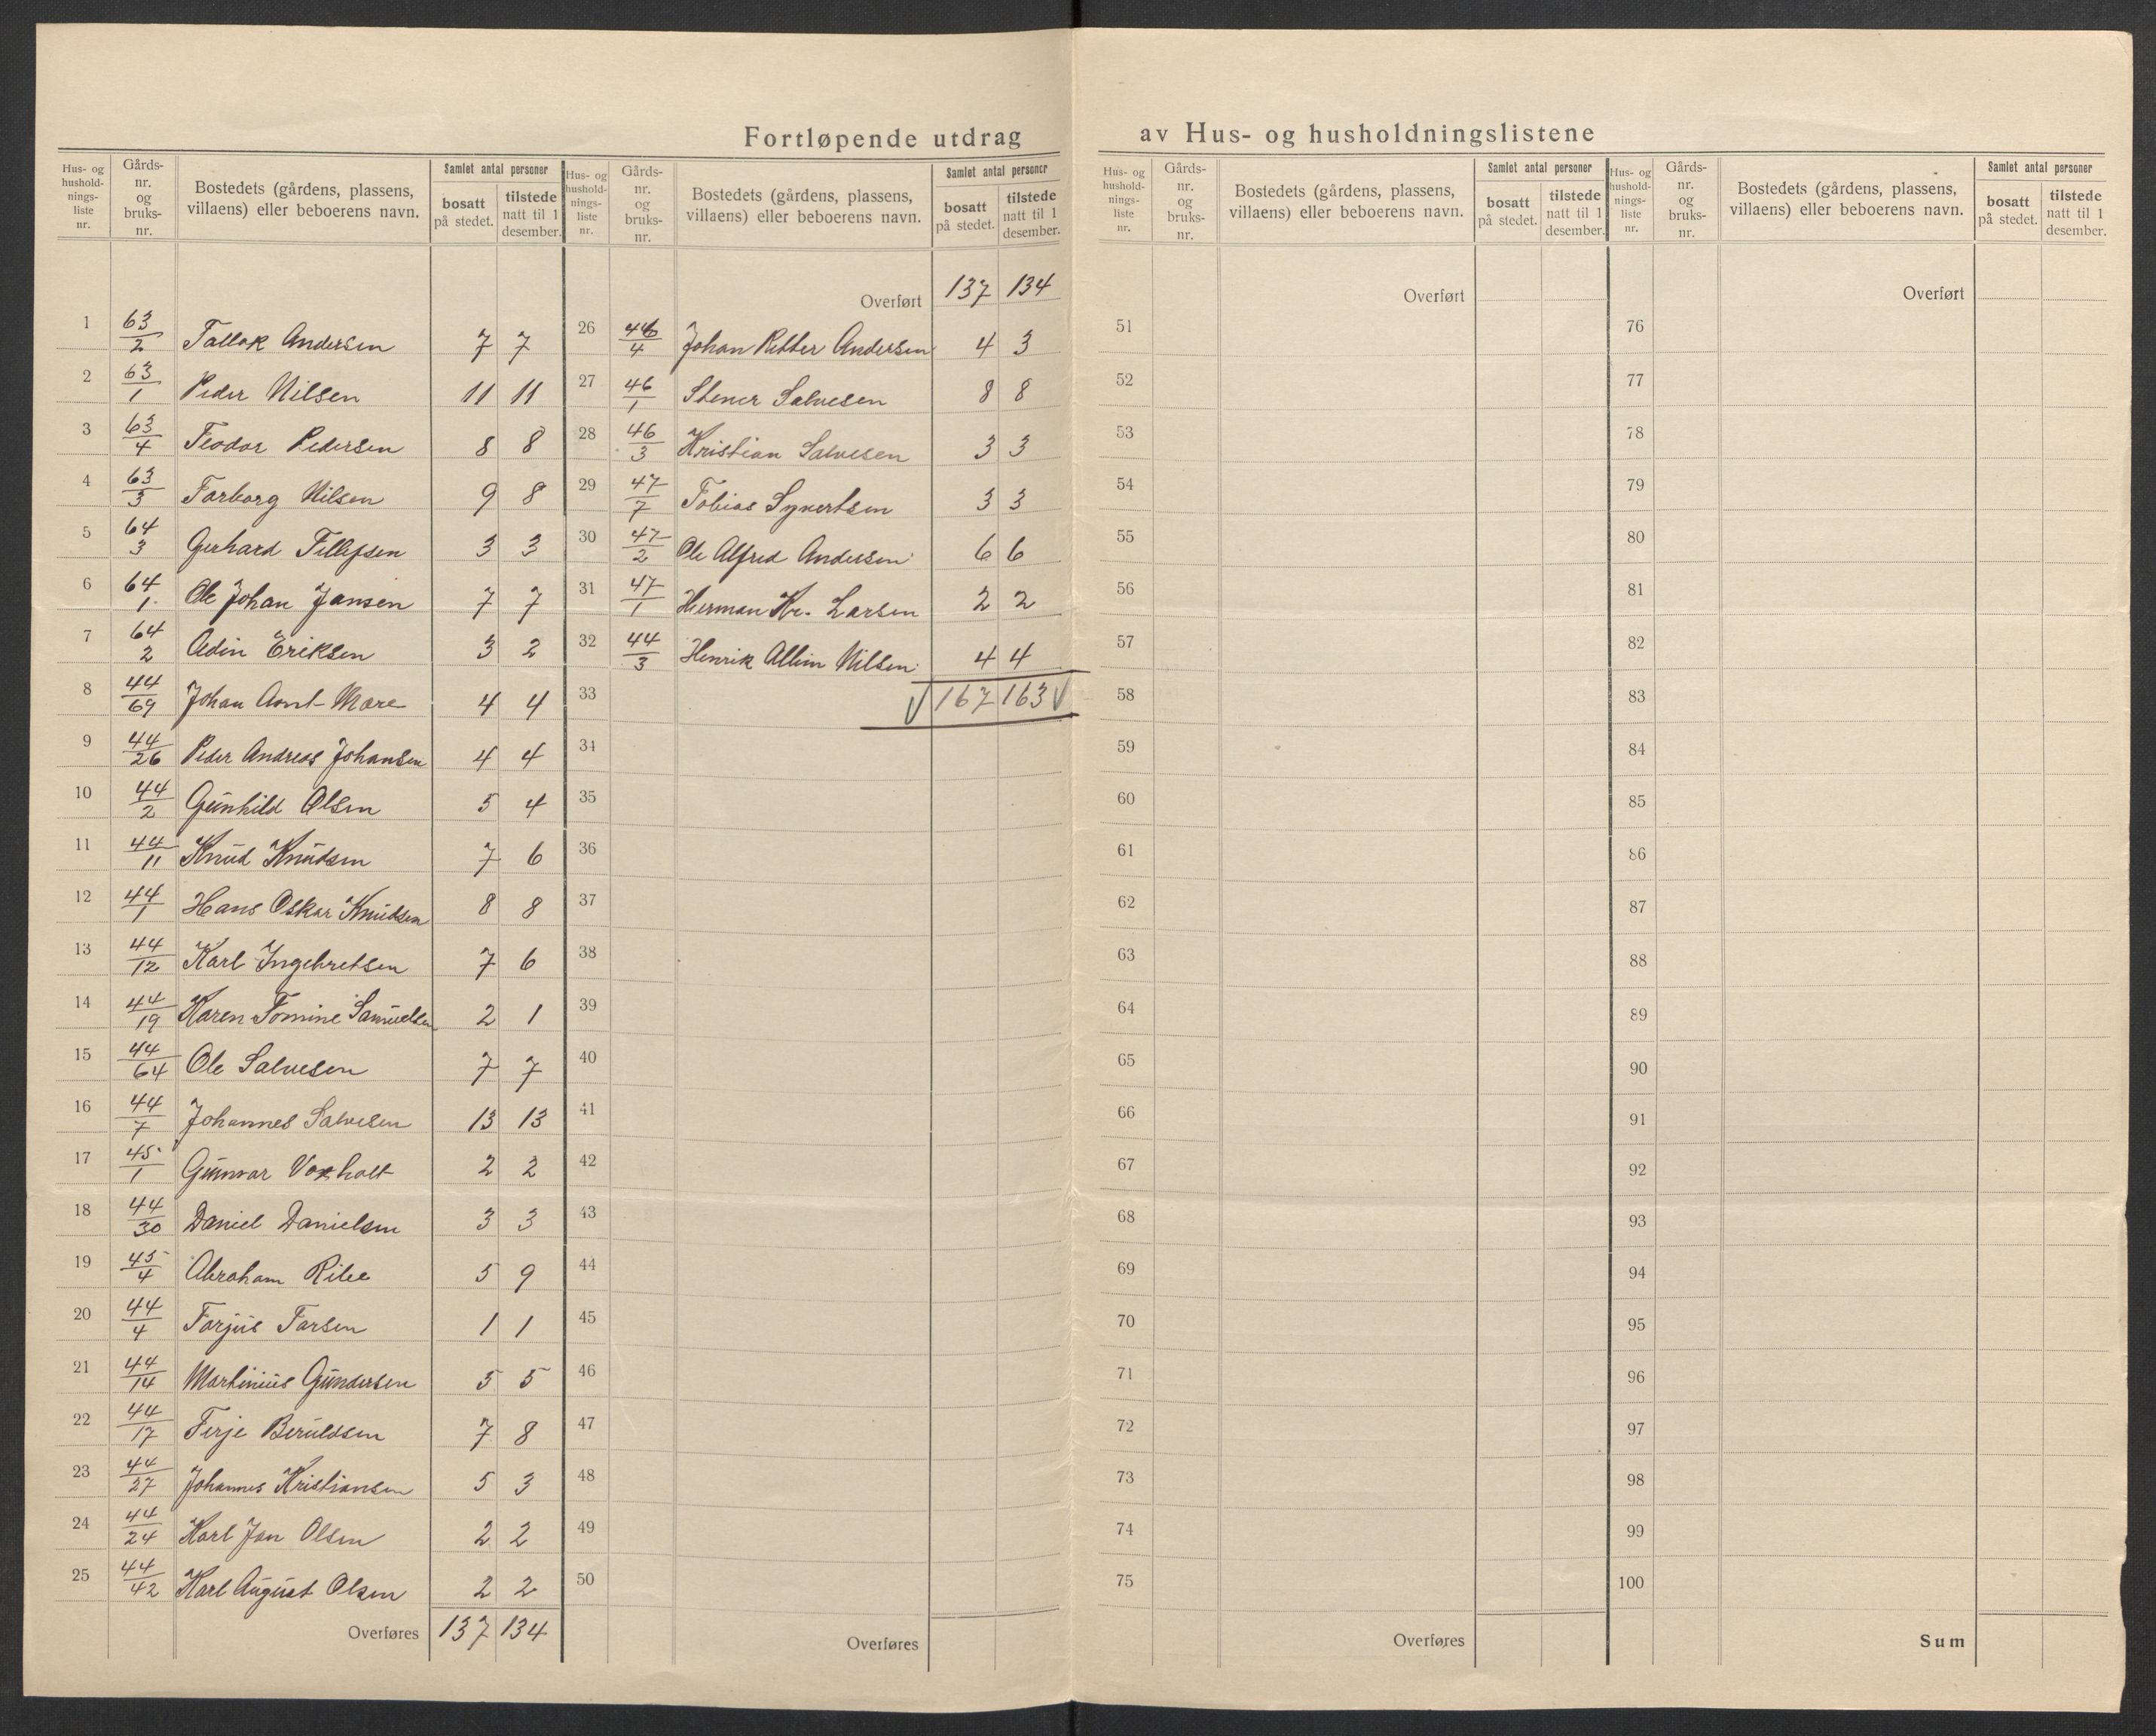 Fortløpende utdrag av Hus- og husholdningslistene
Hus- og husholdningsliste nr. | Gårdsnr. og bruksnr. | Bostedets (gårdens, plassens, villaens) eller beboerens navn. | Samlet antal personer bosatt på stedet. | tilstede natt til 1 desember.
1 63/2 Tallak Andersen 7 7
2 63/1 Peder Nilsen 11 11
3 63/4 Teodor Pedersen 8 8
4 63/3 Torborg Nilsen 9 8
5 64/3 Gerhard Tellefsen 3 3
6 64/1 Ole Johan Jansen 7 7
7 64/2 Edin Eriksen 3 2
8 44/69 Johan Arnt Mare 4 4
9 44/26 Peder Andreas Johansen 4 4
10 44/2 Gunhild Olsen 5 4
11 44/11 Knud Knudsen 7 6
12 44/1 Hans Oskar Knudsen 8 8
13 44/12 Karl Ingebretsen 7 6
14 44/19 Karen Tomine Samuelsen 2 1
15 44/64 Ole Salvesen 7 7
16 44/7 Johannes Salvesen 13 13
17 45/1 Gunvar Voxholt 2 2
18 44/30 Daniel Danielsen 3 3
19 45/4 Abraham Ribe 5 9
20 44/4 Torjus Tarsen 1 1
21 44/14 Martinius Gundersen 5 5
22 44/17 Terje Beruldsen 7 8
23 44/27 Johannes Kristiansen 5 3
24 44/24 Karl Jan Olsen 2 2
25 44/42 Karl August Olsen 2 2
Overføres 137 134
Hus- og husholdningsliste nr. | Gårdsnr. og bruksnr. | Bostedets (gårdens, plassens, villaens) eller beboerens navn. | Samlet antal personer bosatt på stedet. | tilstede natt til 1 desember.
Overført 137 134
26 46/4 Johan Retter Andersen 4 3
27 46/1 Stener Salvesen 8 8
28 46/3 Kristian Salvesen 3 3
29 47/7 Tobias Syvertsen 3 3
30 47/2 Ole Alfred Andersen 6 6
31 47/1 Herman Kr. Larsen 2 2
32 44/3 Henrik Allim Nilsen 4 4
33 167 163
34
35
36
37
38
39
40
41
42
43
44
45
46
47
48
49
50
Overføres
Hus- og husholdningsliste nr. | Gårdsnr. og bruksnr. | Bostedets (gårdens, plassens, villaens) eller beboerens navn. | Samlet antal personer bosatt på stedet. | tilstede natt til 1 desember.
Overført
51
52
53
54
55
56
57
58
59
60
61
62
63
64
65
66
67
68
69
70
71
72
73
74
75
Overføres
Hus- og husholdningsliste nr. | Gårdsnr. og bruksnr. | Bostedets (gårdens, plassens, villaens) eller beboerens navn. | Samlet antal personer bosatt på stedet. | tilstede natt til 1 desember.
Overført
76
77
78
79
80
81
82
83
84
85
86
87
88
89
90
91
92
93
94
95
96
97
98
99
100
Sum